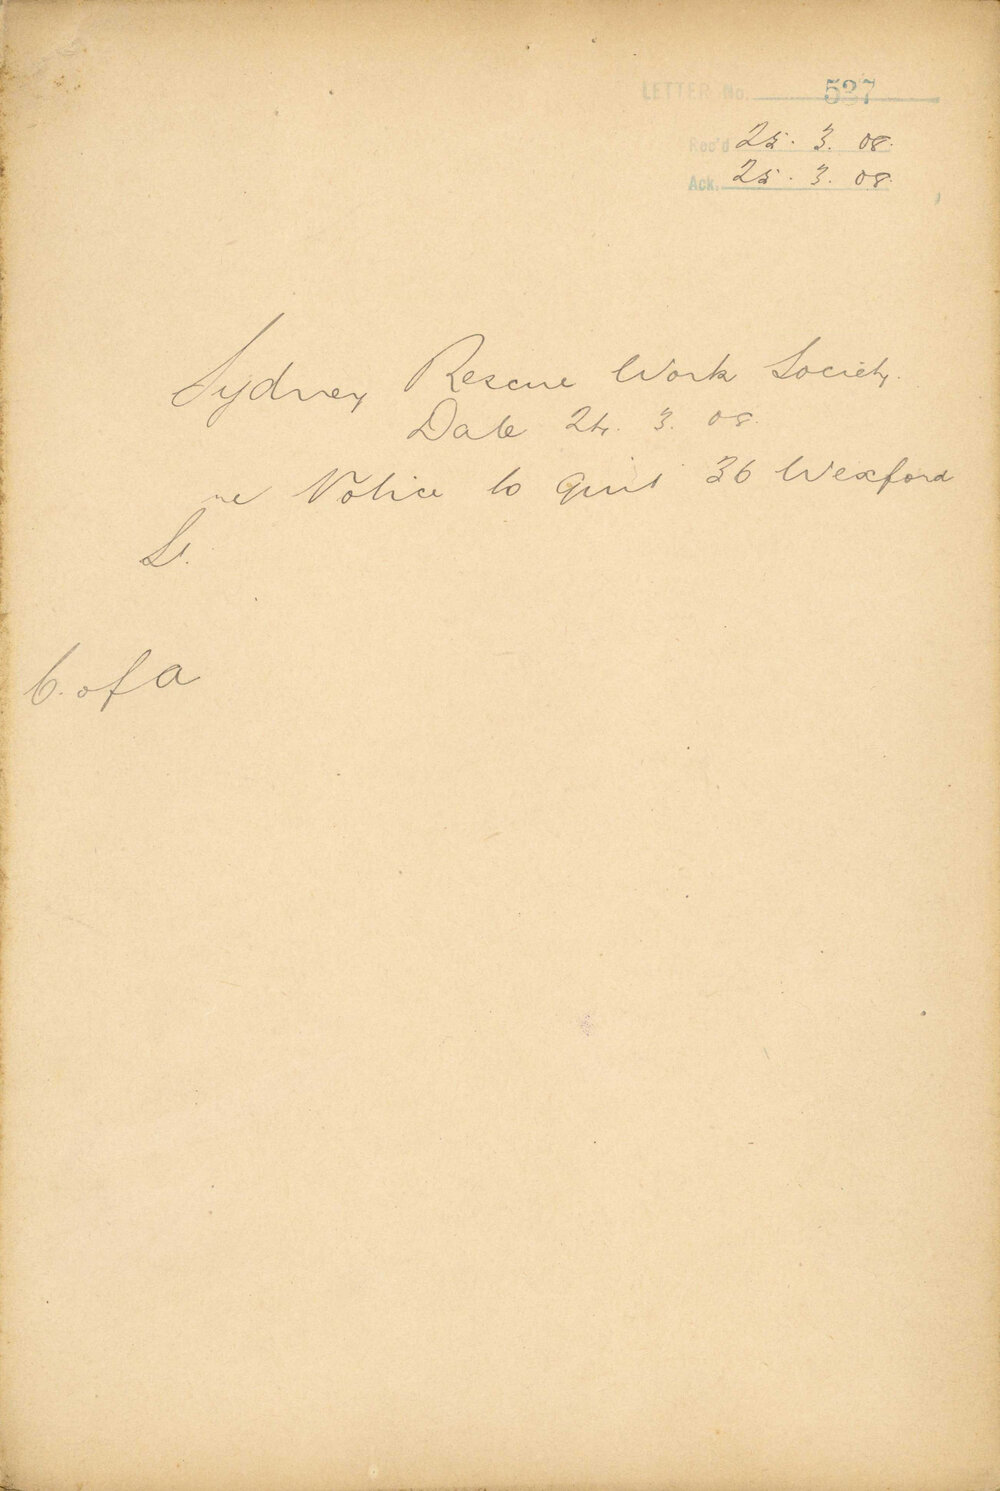 LETTER No. 527
Rec'd 25. 3. 08.
Ack. 25. 3. 08.
Sydney Rescue Work Society.
Date 24. 3. 08.
re Notice to quit 36 Wexford
St.
C. of A